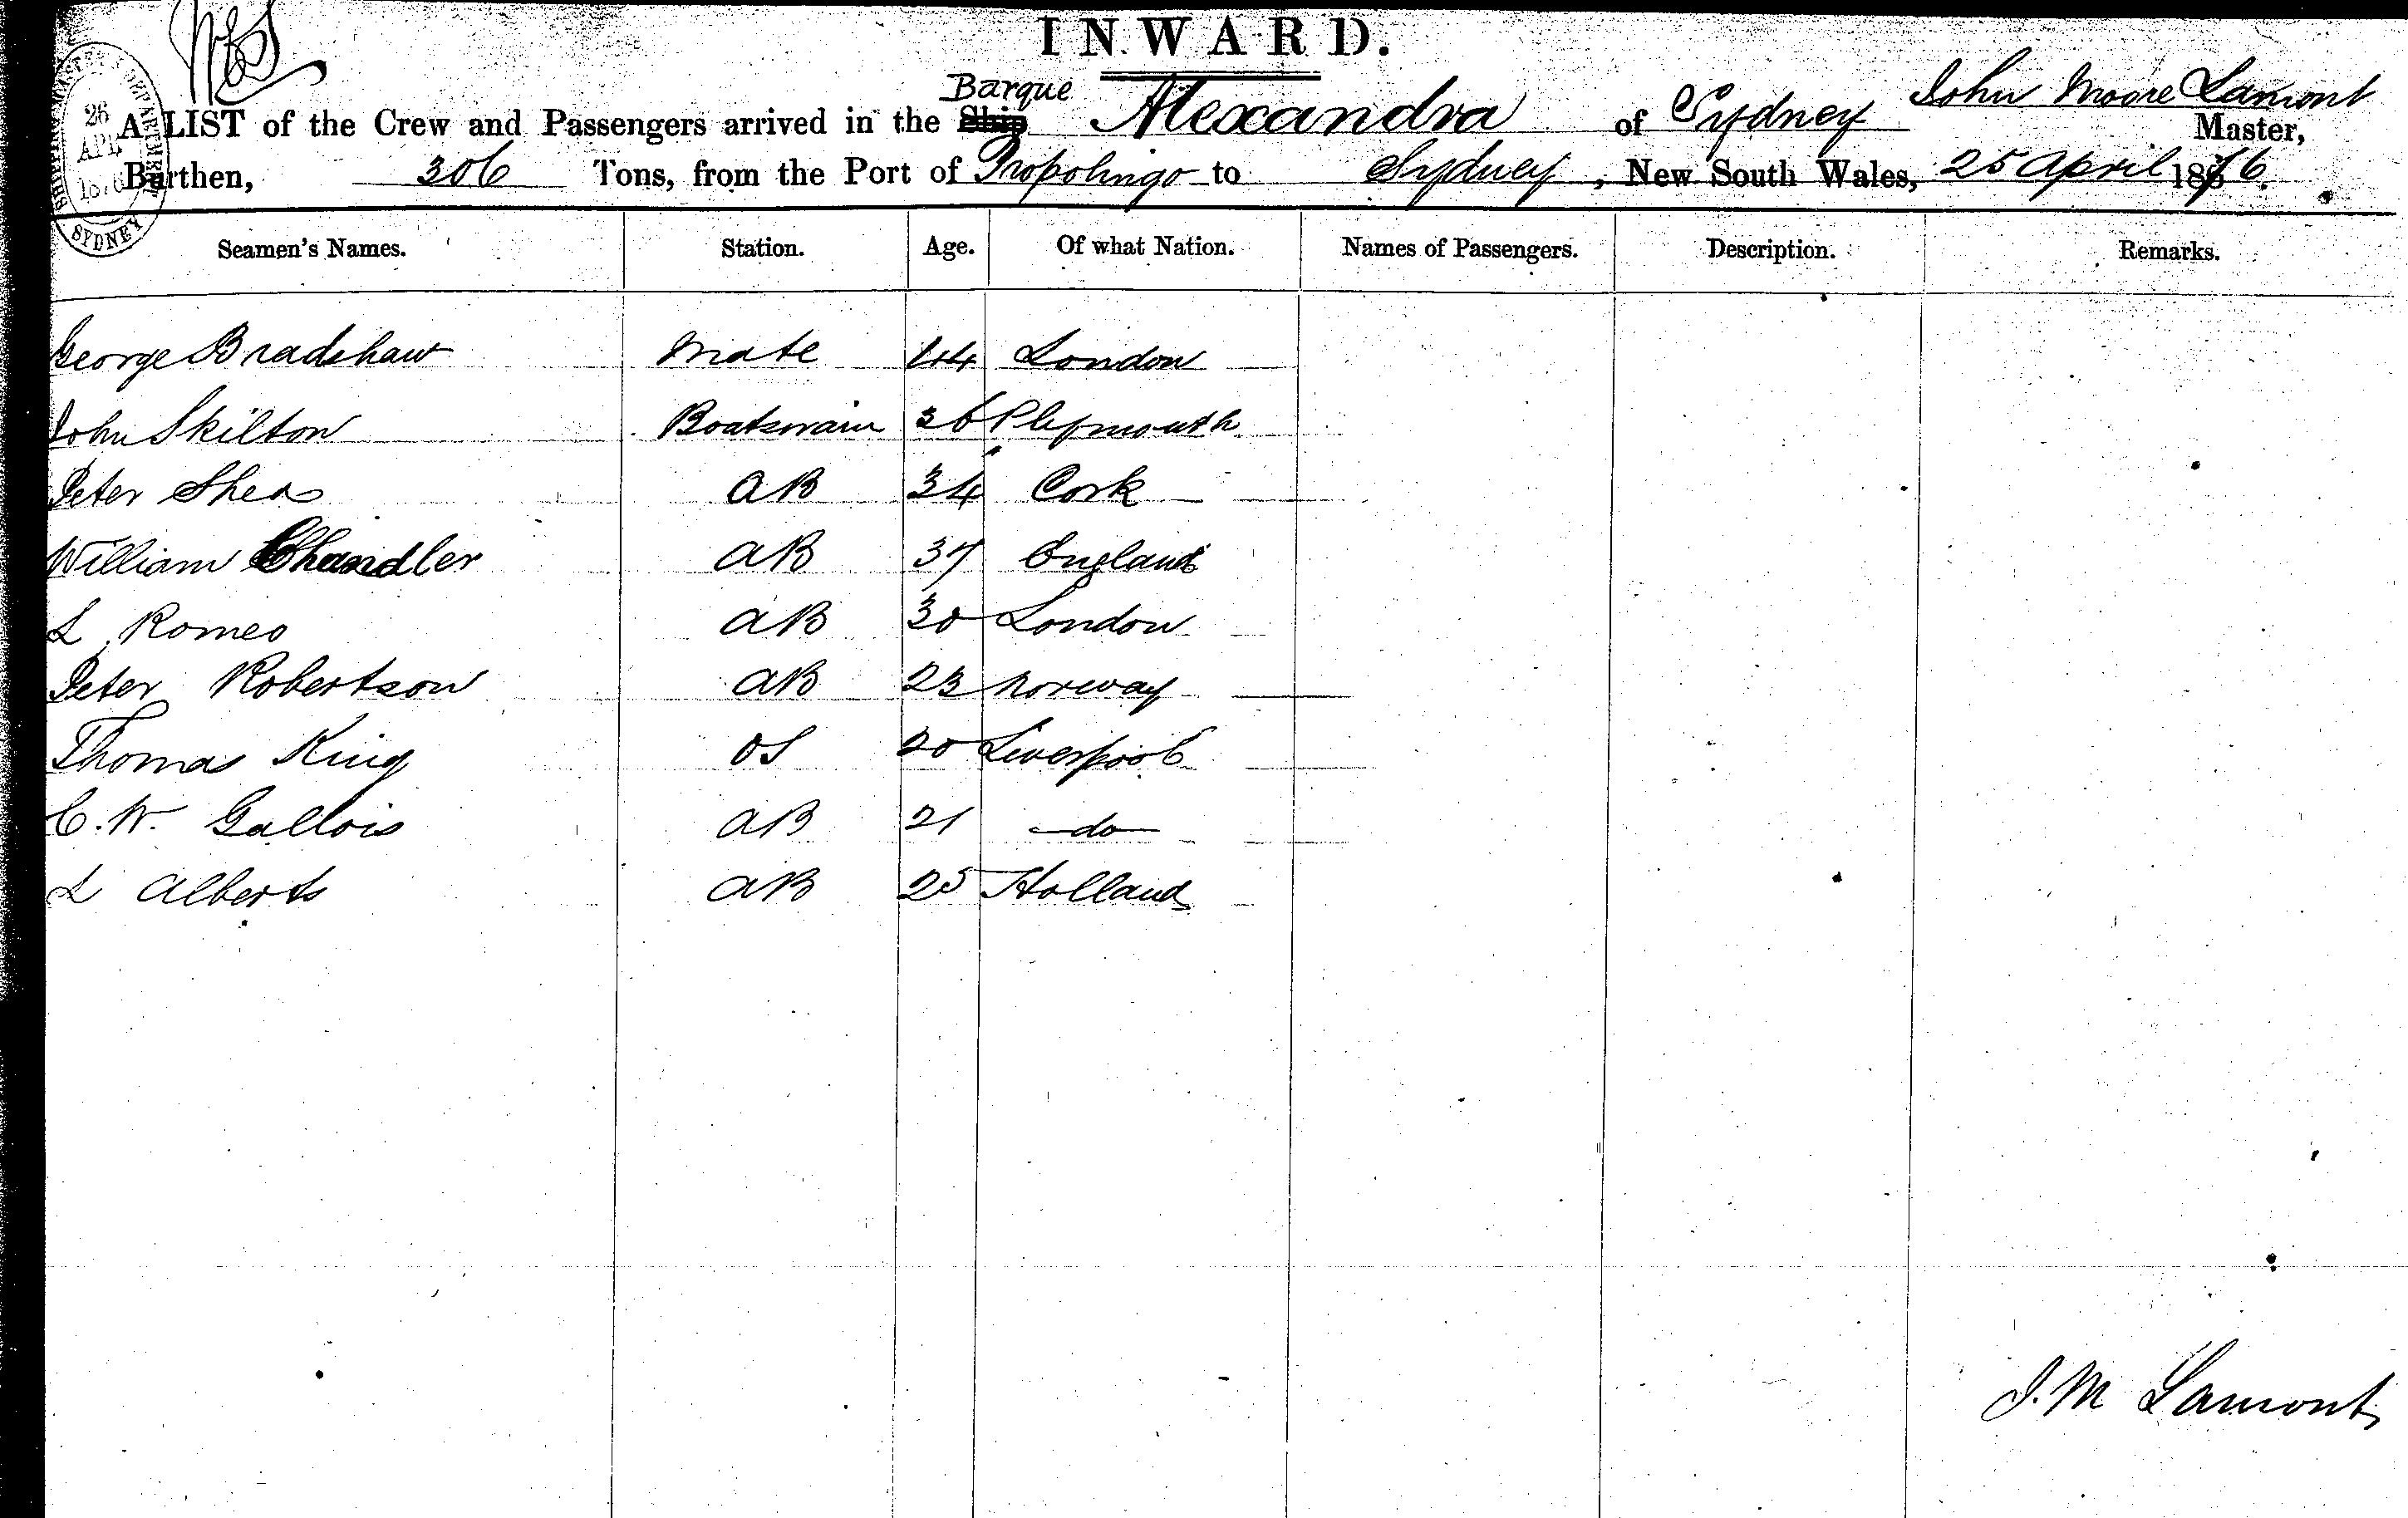 INWARD.
A LIST of the Crew and Passengers arrived in the Ship Barque Alexandra of Sydney John Moore Lamont Master,
Burthen, 306 Tons, from the Port of Propolingo to Sydney, New South Wales, 25 April 1876.
26
APL
1876
SYDNEY
Seamen's Names. Station. Age. Of what Nation. Names of Passengers. Description. Remarks.
George Bradshaw Mate 44 London
John Skilton Boatswain 36 Plymouth
Peter Shea AB 34 Cork
William Chandler AB 37 England
L Romeo AB 30 London
Peter Robertson AB 23 Norway
Thomas King OS 20 Liverpool
C. W. Gallois AB 21 do
L Alberts AB 25 Holland
J. M Lamont